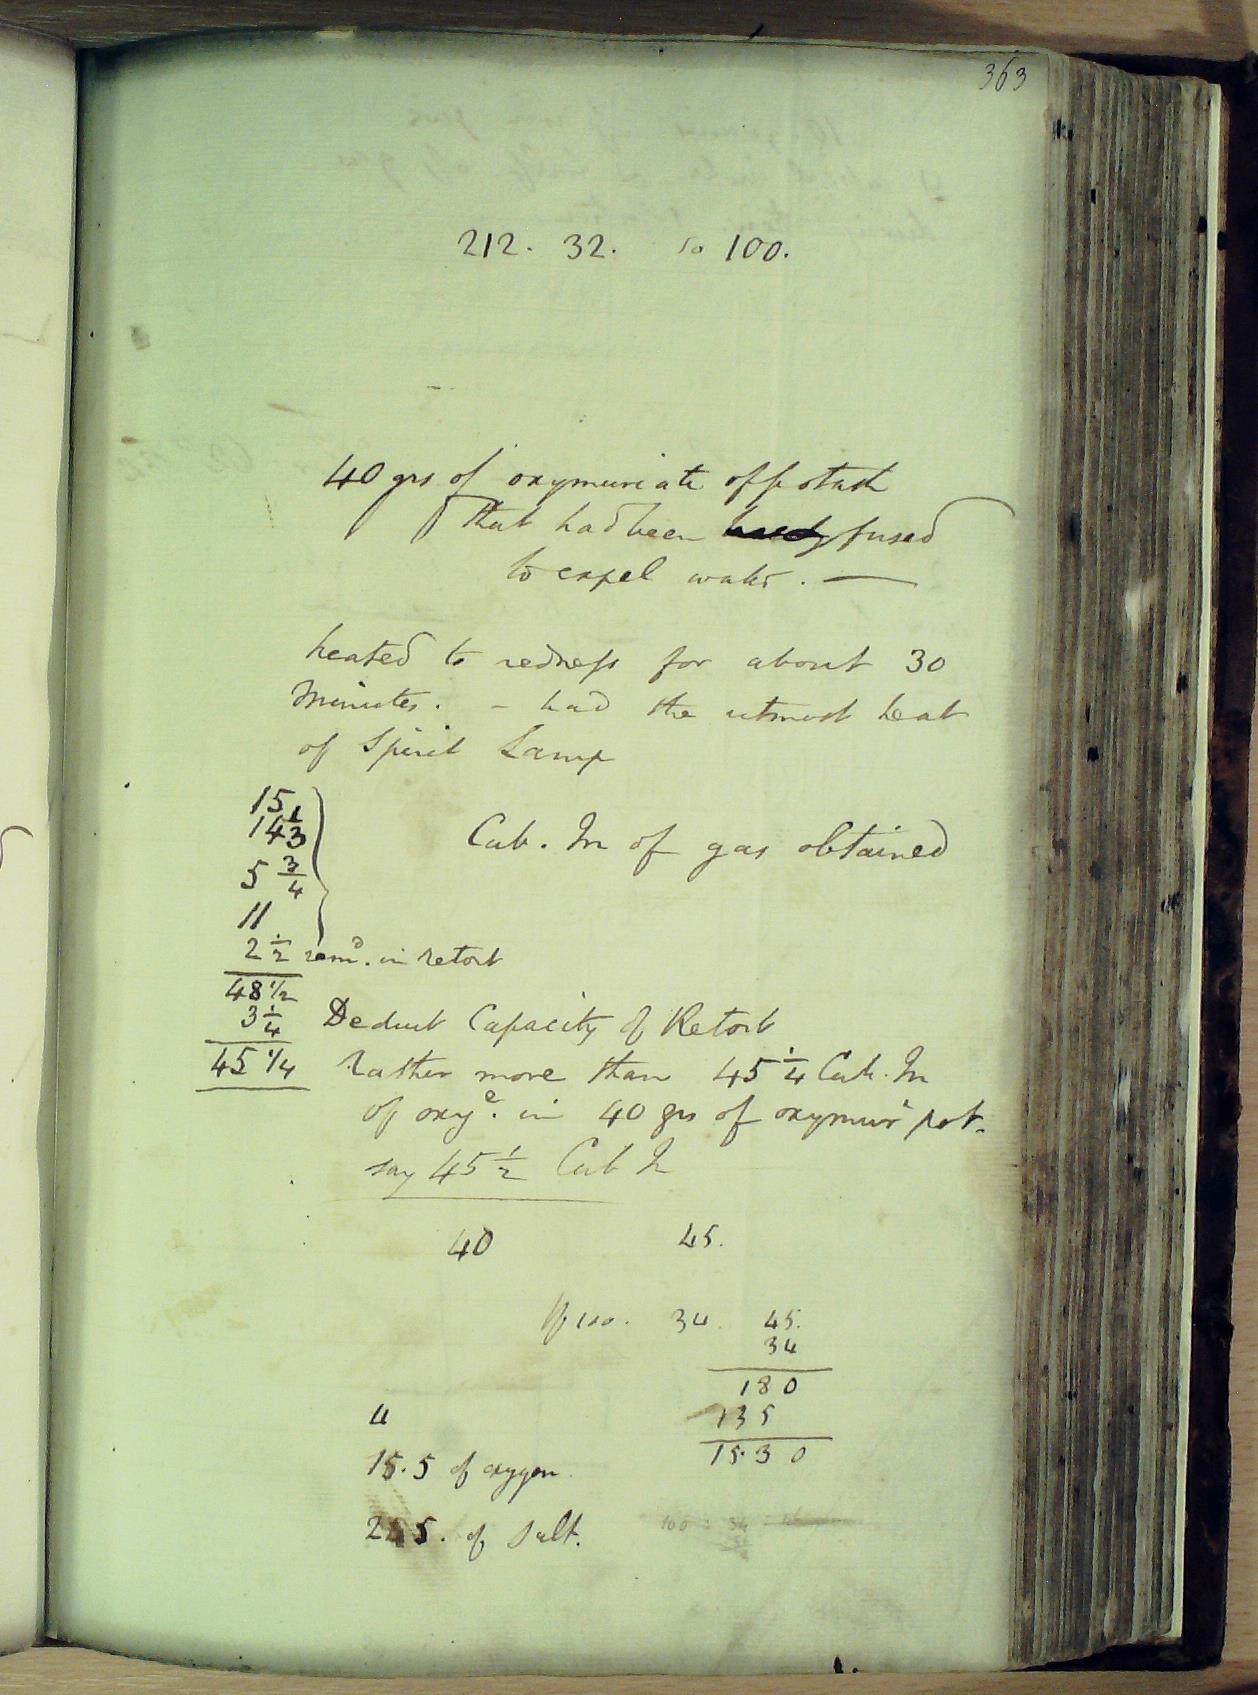 363
212. 32. so 100.
40 grs of oxymuriate of potash
that had been fused
to expel water. —
heated to redness for about 30
Minutes. – had the utmost heat
of Spirit Lamp
15
14 1/3
5 3/4
11
Cub. In of gas obtained
2 1/2 remd. in retort
48 1/2
3 1/4 Deduct Capacity of Retort
45 1/4 Rather more than 45 1/4 Cub. In
of oxye. in 40 grs of oxymur pot.
say 45 1/2 Cub In
40 45.
If 100. 34. 45.
34
180
4 135
15.30
15.5 of oxygen.
245. of salt.
100 : 34